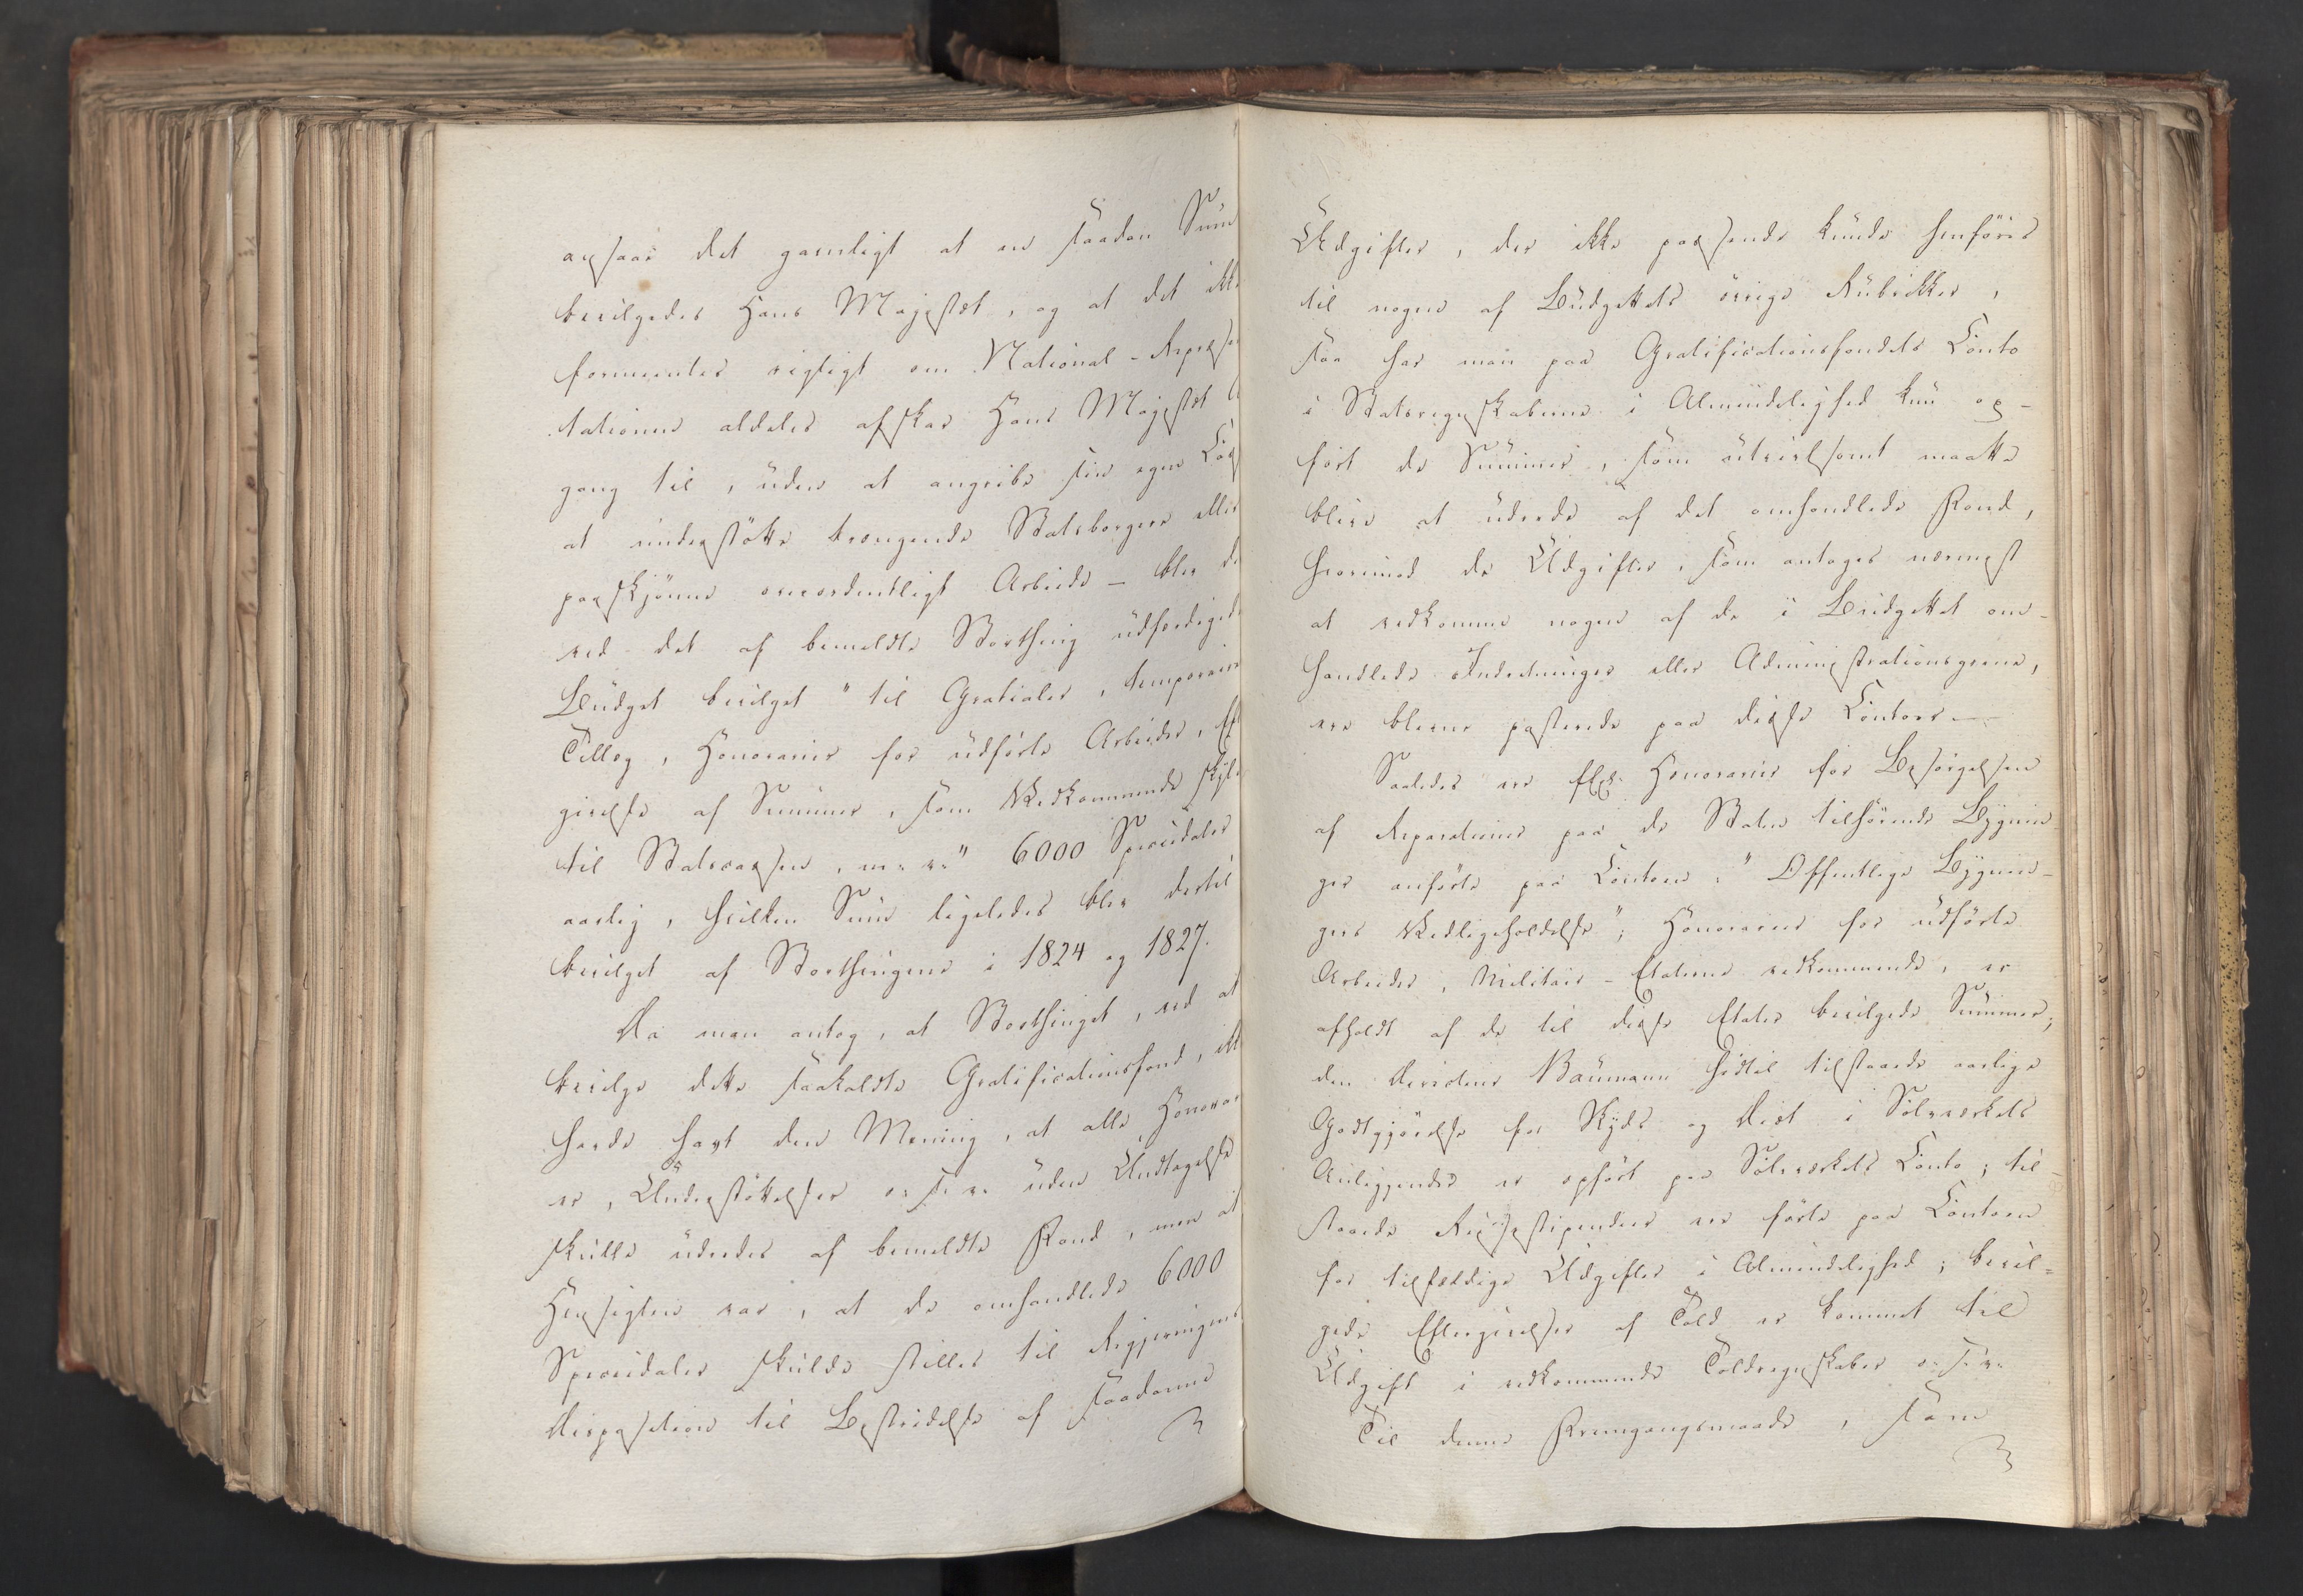 ansaae det gavnligt at en saadan Sum
bevilgedes Hans Majestæt, og at det ikke
formeentes rigtigt om National-Repræsen
tationen aldeles afskar Hans Majestæt A
gang til, uden at angribe sin egen Cas
at understøtte trængende Statsborgere eller
paaskjønne overordentligt Arbeide – blev de
ved det af bemeldte Storthing udfærdigede
Budget bevilget "til Gratialer, temporaire
Tillæg, Honorarier for udførte Arbeider, Ef
givelse af Summer, som Vedkommende skyld
til Statscassen, m: v:" 6000 Speciedaler
aarlig, hvilken Sum ligeledes blev dertil
bevilget af Storthingene i 1824 og 1827.
Da man antog, at Storthinget, ved at
bevilge dette saakaldte Gratificationsfond, ikke
havde havt den Mening, at alle Honorar
er, Understøttelser o: s: v: uden Undtagelse
skulle udredes af bemeldte Fond, men at
Hensigten var, at de omhandlede 6000
Speciedaler skulde stilles til Regjeringens
Disposition til Bestridelse af saadanne
Udgifter, der ikke passende kunde henføres
til nogen af Budgettets øvrige Rubrikker,
saa har man paa Gratificationsfondets Conto
i Statsregnskaberne i Almindelighed kun op-
ført de Summer, som utvivlsomt maatte
blive at udrede af det omhandlede Fond,
hvorimod de Udgifter, som antages nærmest
at vedkomme nogen af de i Budgettet om-
handlede Indretninger eller Administrationsgrene,
ere blevne posterede paa disse Contoer.—
Saaledes ere f. Ex: Honorarier for Besørgelsen
af Reparationer paa de Staten tilhørende Bygnin-
ger anførte paa Contoen: "Offentlige Bygnin-
gers Vedligeholdelse"; Honorarier for udførte
Arbeider, Militair-Etaterne vedkommende, er
afholdt af de til disse Etater bevilgede Summer;
den Revident Baumann hidtil tilstaaede aarlige
Godtgjørelse for Skyds og Diæt i Sølvværkets
Anliggender er opført paa Sølvværkets Conto; til-
staaede Reisestipendier ere førte paa Contoen
for tilfældige Udgifter i Almindelighed; bevil-
gede Eftergivelser af Told er kommet til
Udgift i vedkommende Toldregnskaber o: s: v:
Til denne Fremgangsmaade, som